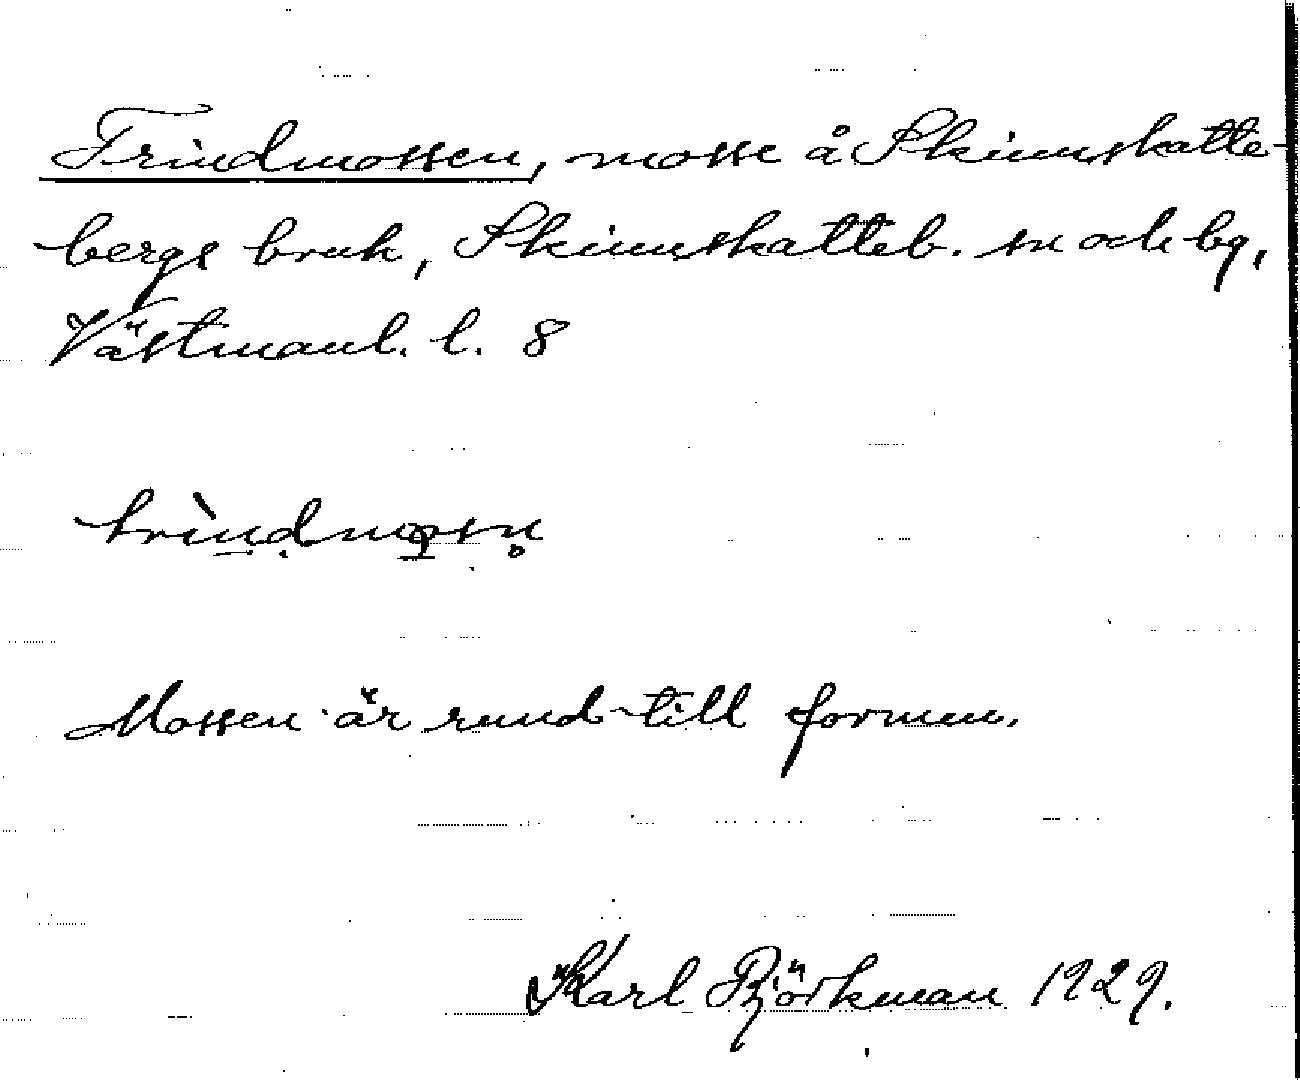 Trindmossen, mosse å Skinnskatte-
bergs bruk, Skinnskatteb. sn och bg,
Västmanl. l. 8
trìndmosn̥
Mossen är rund till formen.
Karl Björkman 1929.